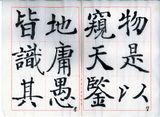 物是以
窺天鑒
地庸愚
皆識其